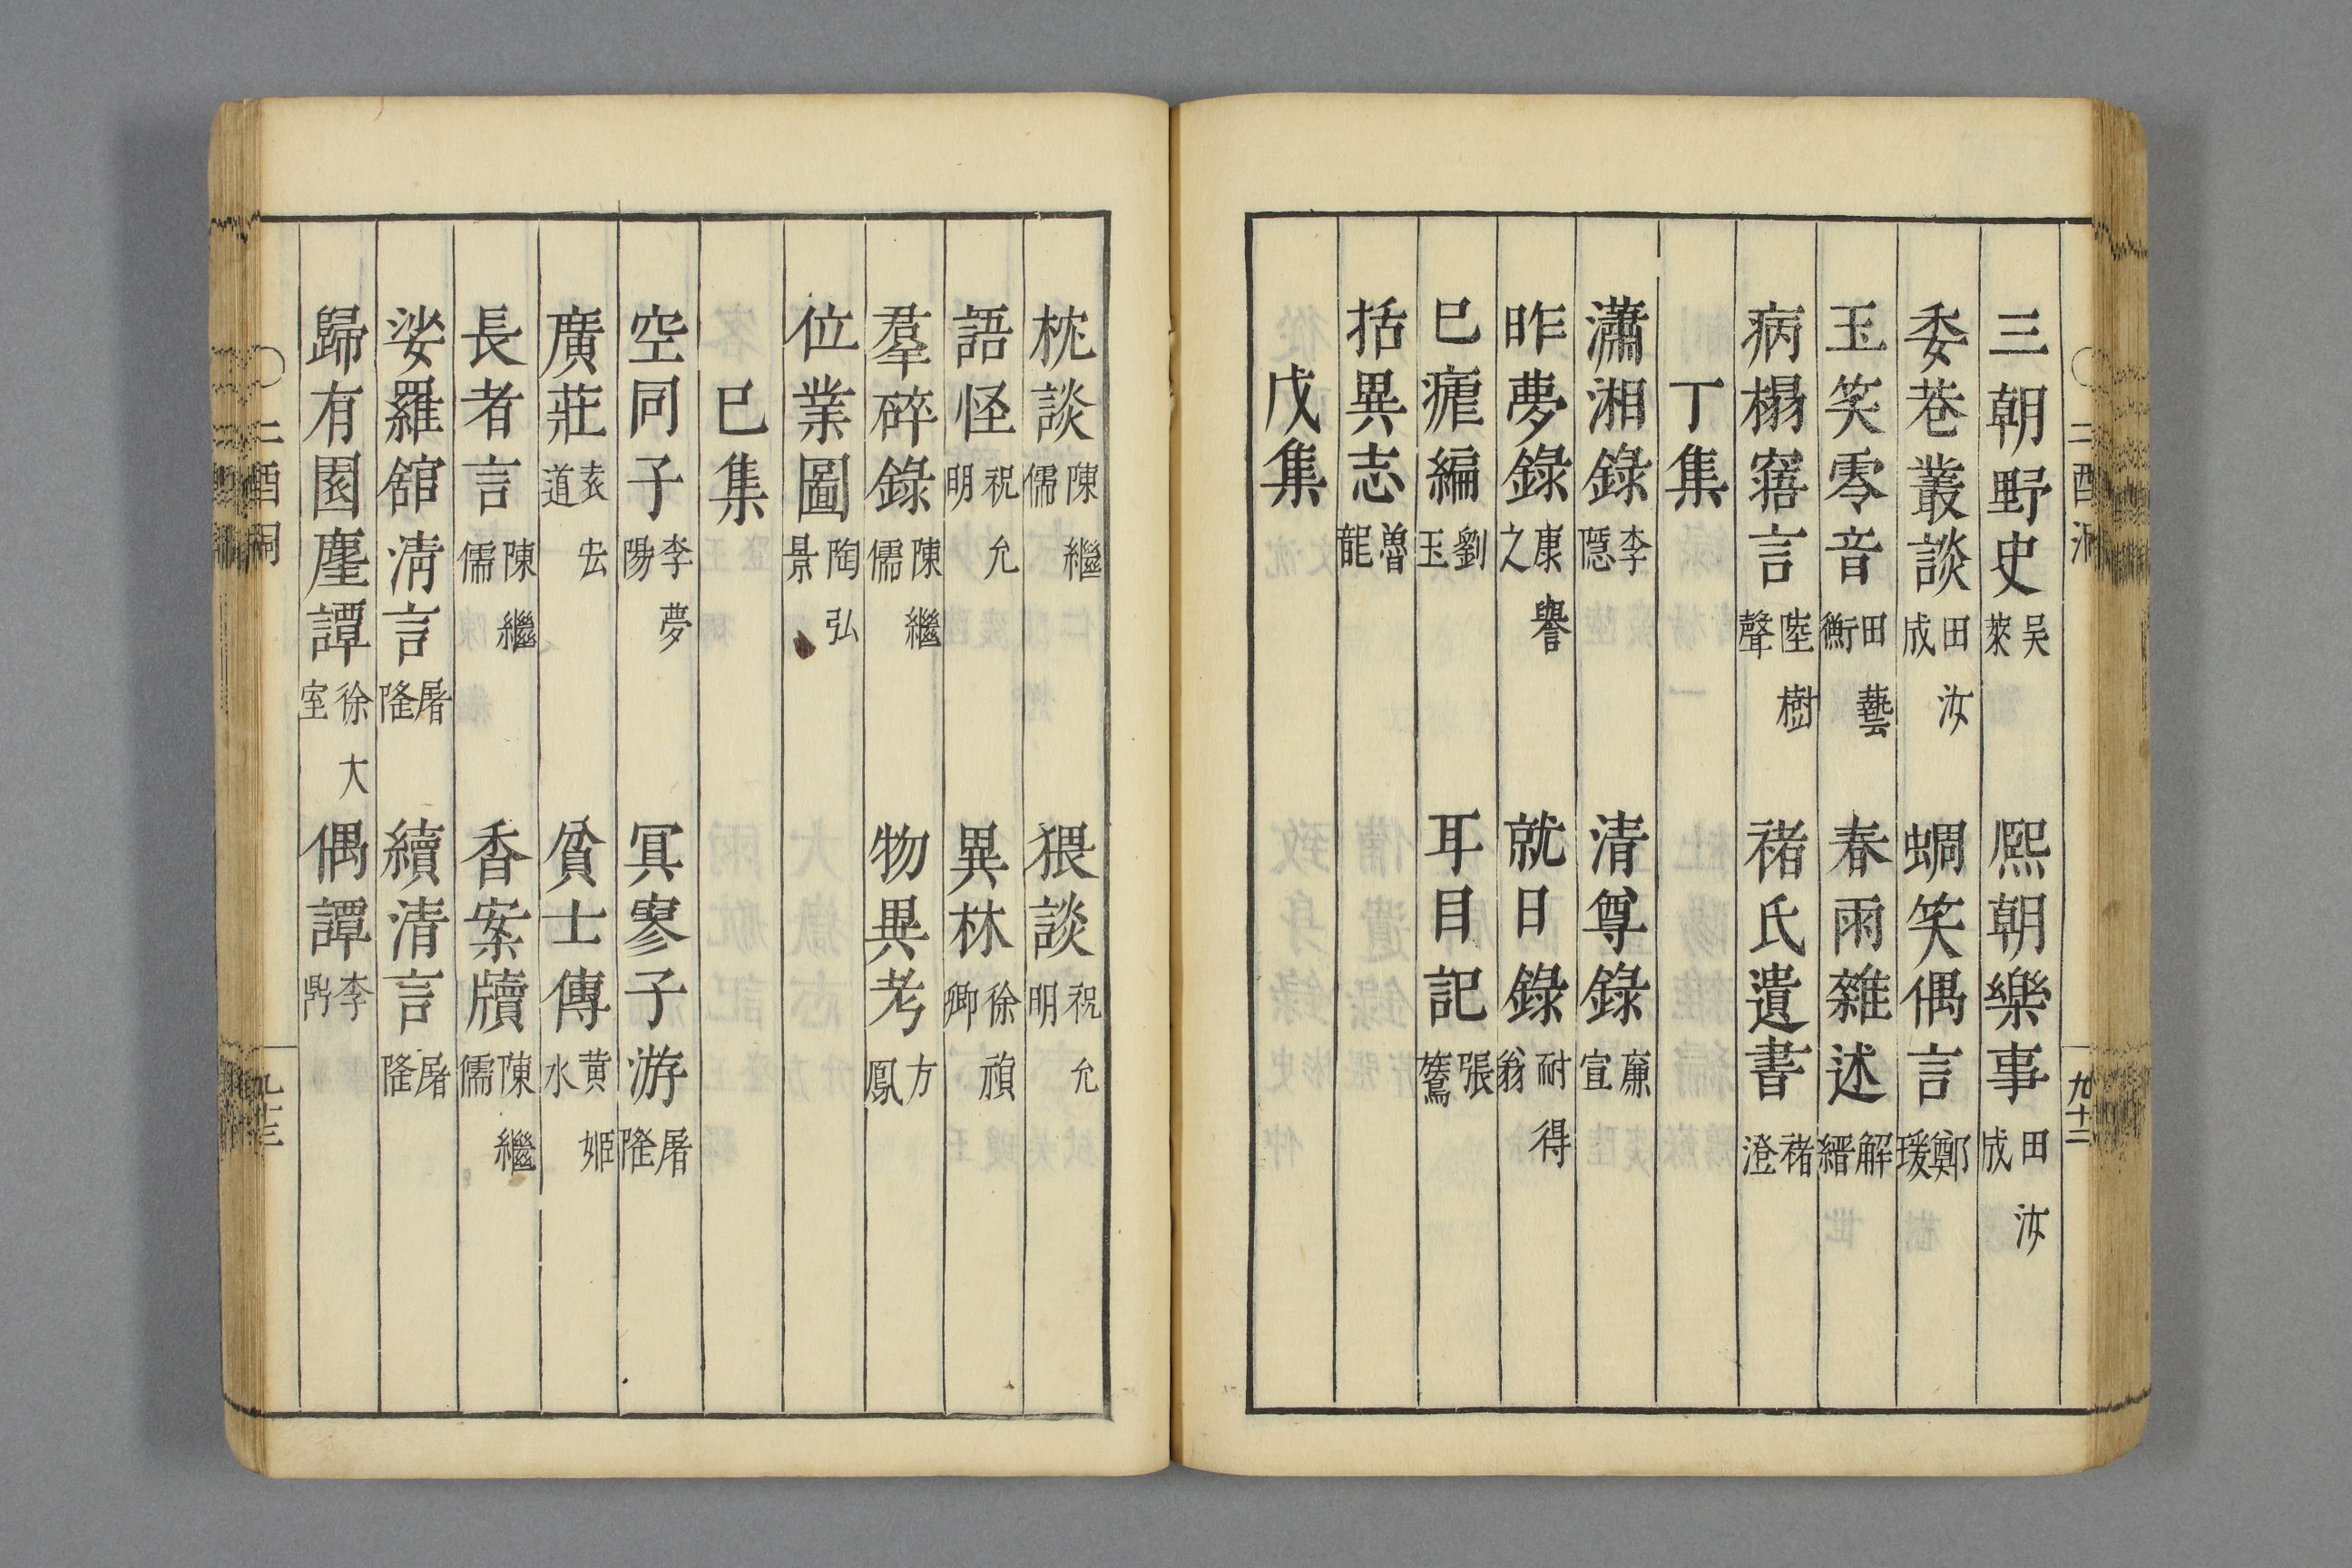 三朝野史吳萊　熙朝樂事田汝成
委巷叢談田汝成　蜩笑偶言鄭瑗
玉笑零音田藝衡　春雨雜述解縉
病榻寤言陸樹聲　褚氏遺書褚澄
丁集
瀟湘錄李隱　清尊錄廉宣
昨夢錄康譽之　就日錄耐得翁
巳瘧編劉玉　耳目記張鷟
括異志魯龍
戊集
二酉洞
九十二
枕談陳繼儒　猥談祝允明
語怪祝允明　異林徐禎卿
羣碎錄陳繼儒　物異考方鳳
位業圖陶弘景
巳集
空同子李夢陽　冥寥子游屠隆
廣莊袁宏道　貧士傳黄姬水
長者言陳繼儒　香案牘陳繼儒
娑羅舘淸言屠隆　續清言屠隆
歸有園麈譚徐大室　偶譚李鼎
二酉洞
九十三